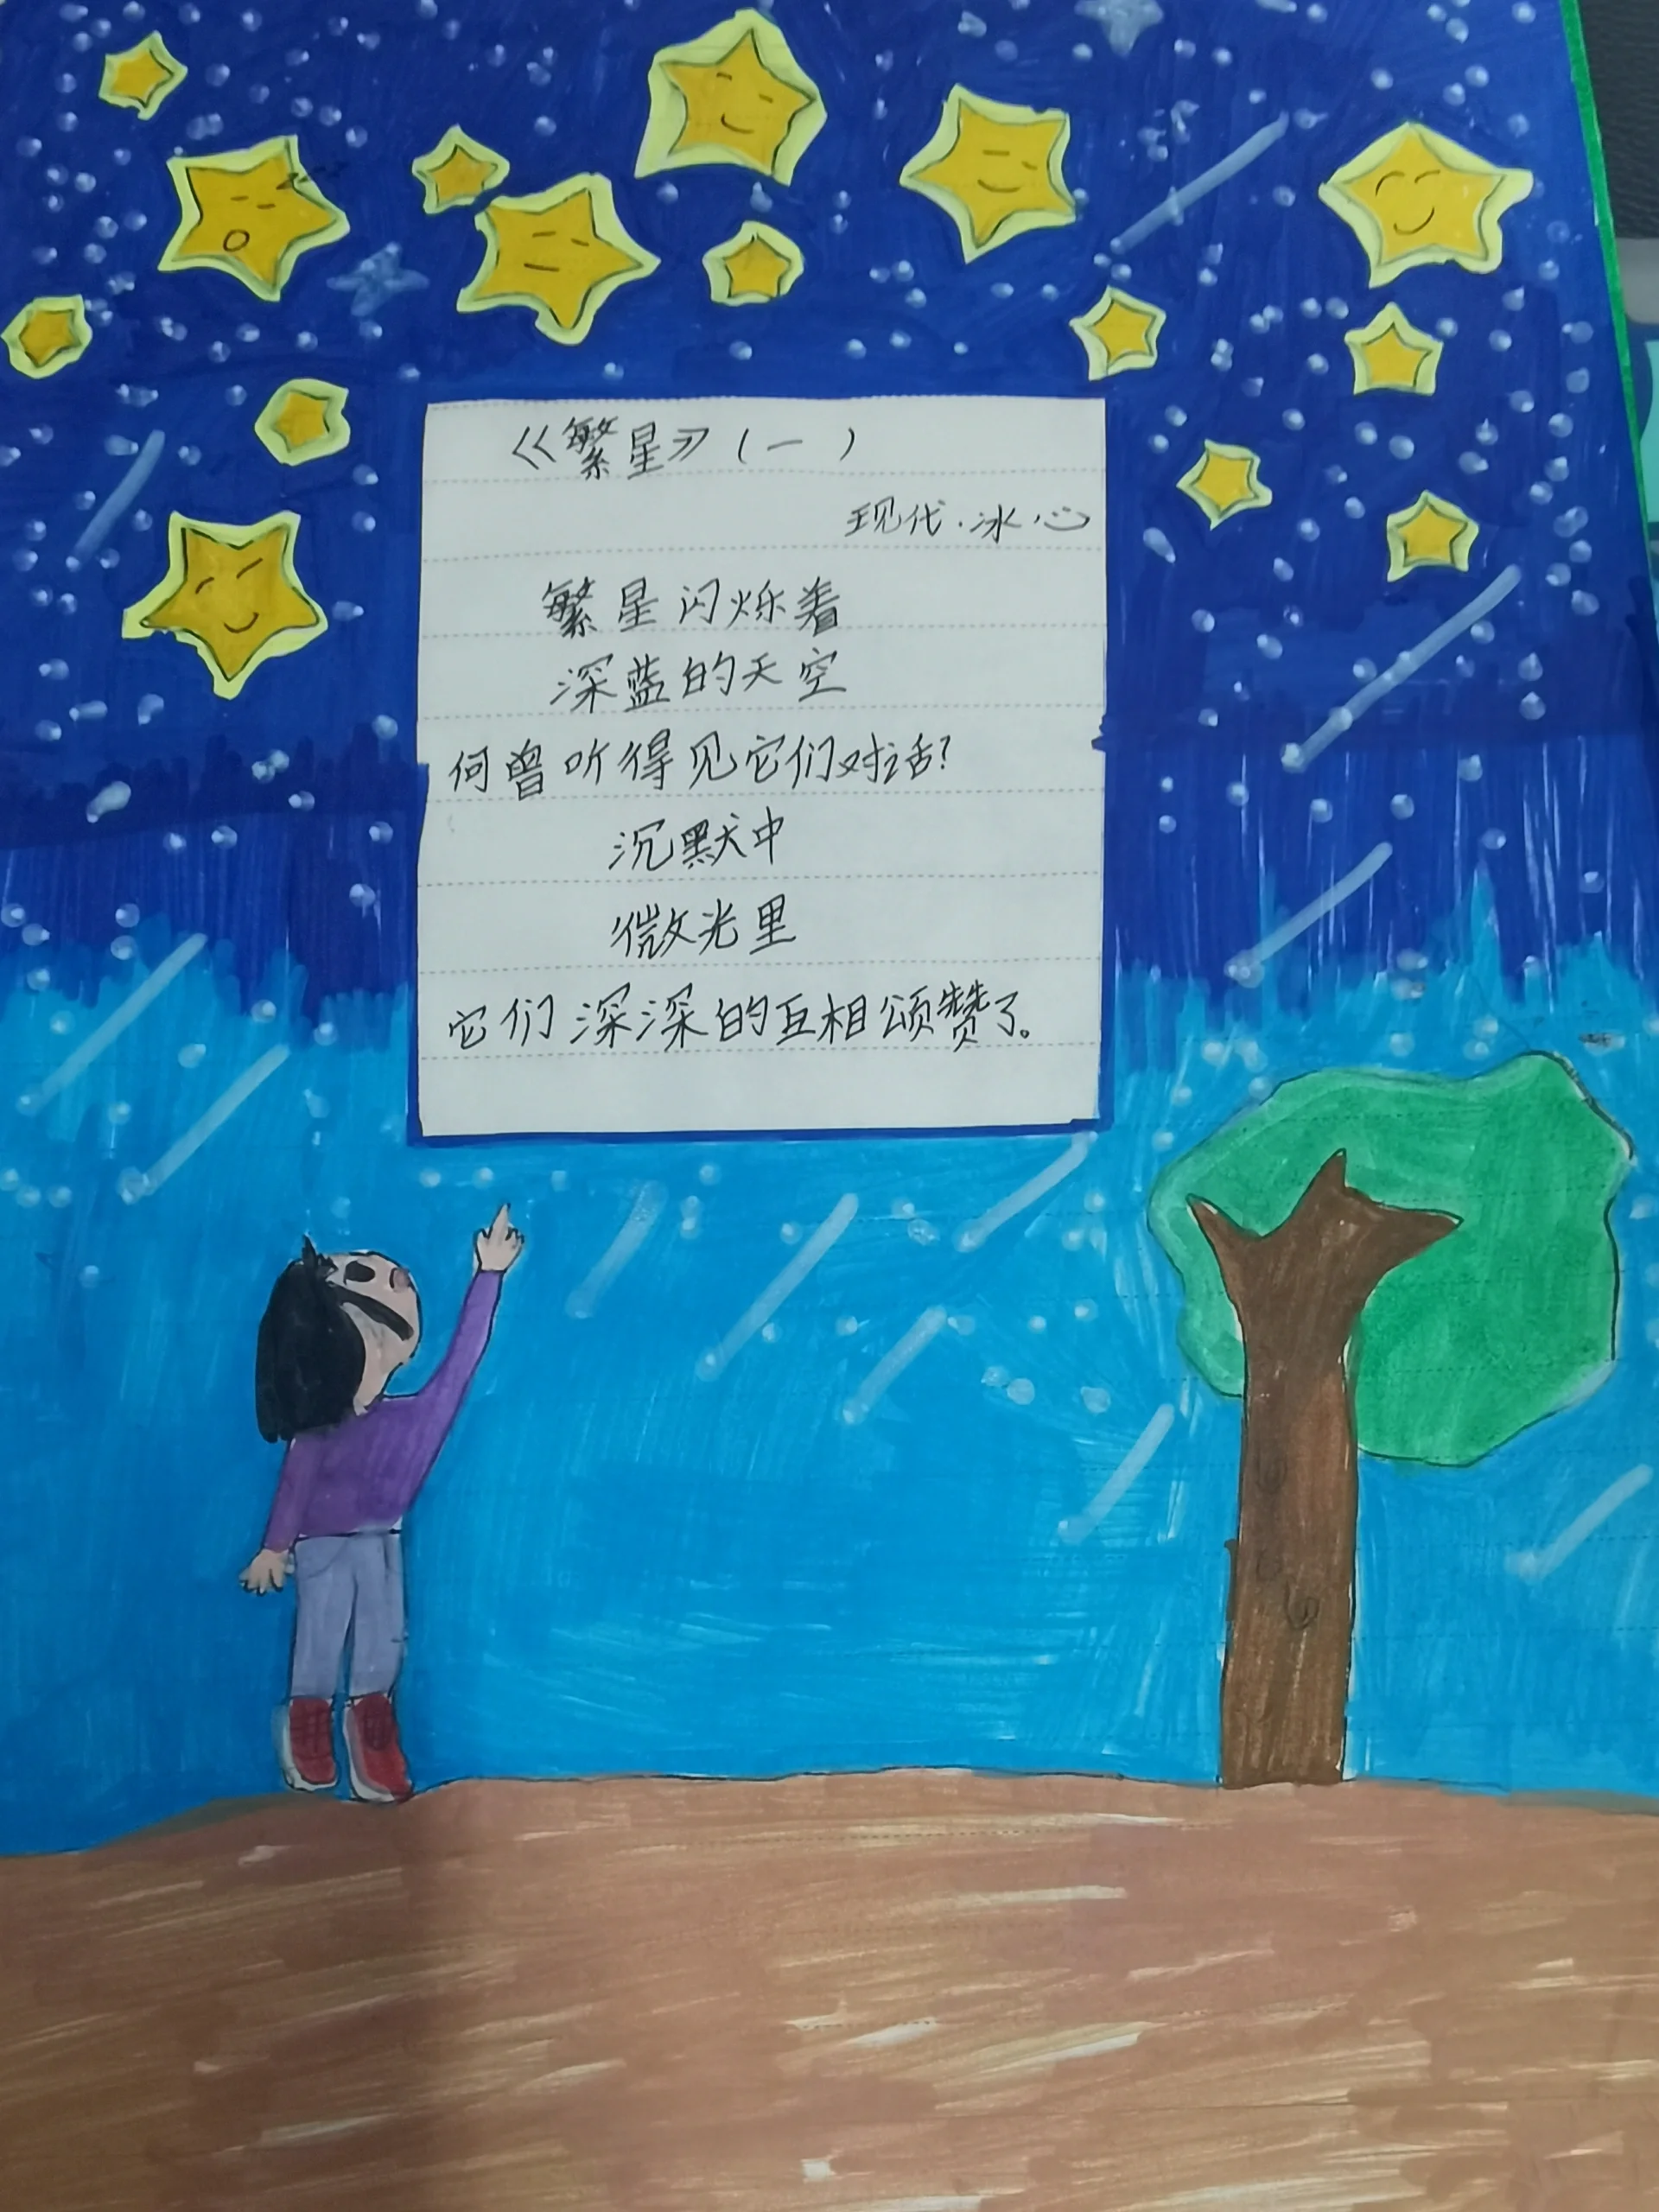 《繁星》（一）
现代.冰心
繁星闪烁着
深蓝的天空
何曾听得见它们对话？
沉默中
微光里
它们深深的互相颂赞了。